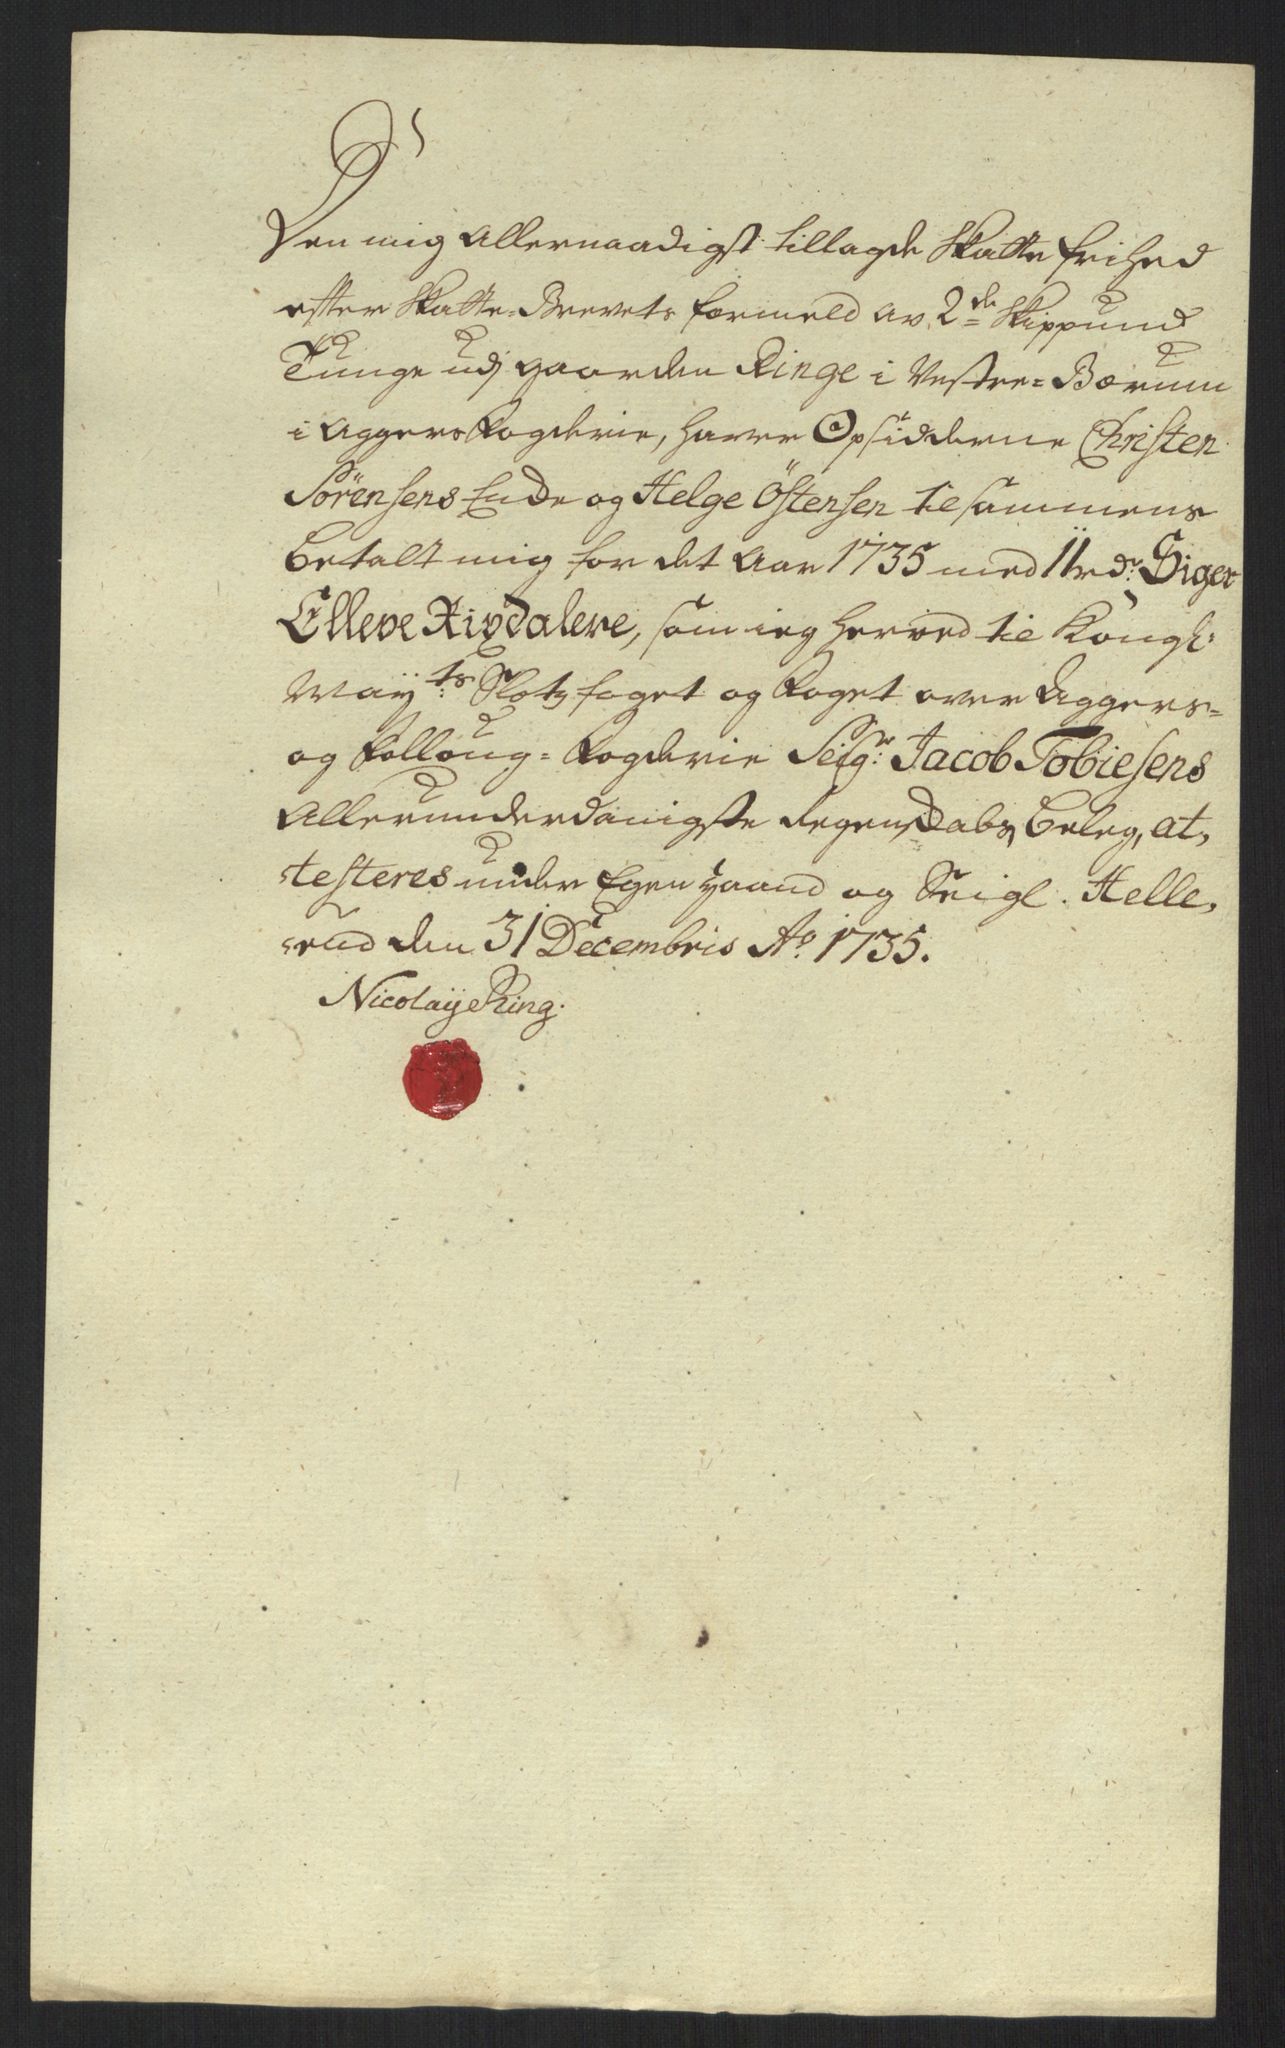 Den mig Allernaadigst tillagde Skatte frihed
efter Skatte-Brevets formeld av 2de Skippund
Tunge udj gaarden Ringe i Vestre-Bærum
i Aggers Fogderie, haver Opsidderne Christen
Sörensens Enche og Helge Östensen tilsammens
betalt mig for det Aar 1735 med 11 rdr. Siger
Elleve Rixdalere, som ieg herved til Kongl:
Mayts Slotz foget og Foget over Aggers-
og Folloug-Fogderie Seigr. Jacob Tobiesens
Allerunderdanigste Regenskabs beleg, at-
testeres under Egen haand og Seigl. Helle-
rud den 31 Decembris Ao 1735.
Nicolaij Ring.